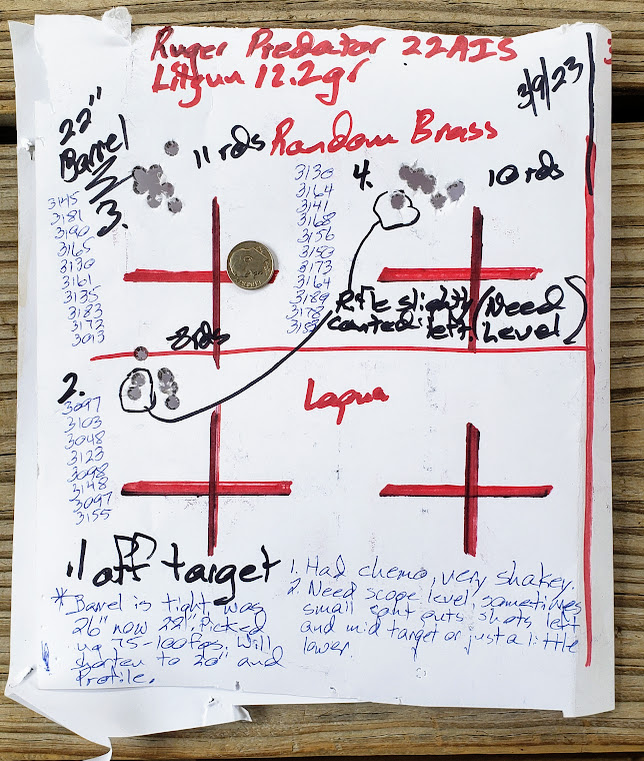 Ruger Predator 22AIS
Litgun 12.2gr
3/9/23
22"
Barrel
11 rds
Random Brass
3.
3145
3181
3190
3165
3130
3161
3135
3183
3172
3093
4.
10 rds
3130
3164
3141
3168
3156
3150
3173
3164
3189
3178
Rifle slightly (Need
canted left. Level)
8rds
2.
3097
3103
3048
3123
3098
3148
3097
3155
Lapua
.1 off target
* Barrel is tight was
26" now 22". Picked
up 75-100fps, Will
shorten to 20" and
Profile.
1. Had chemo, very shakey.
2. Need scope level, sometimes
small cant puts shots left
and mid target or just a little
lower